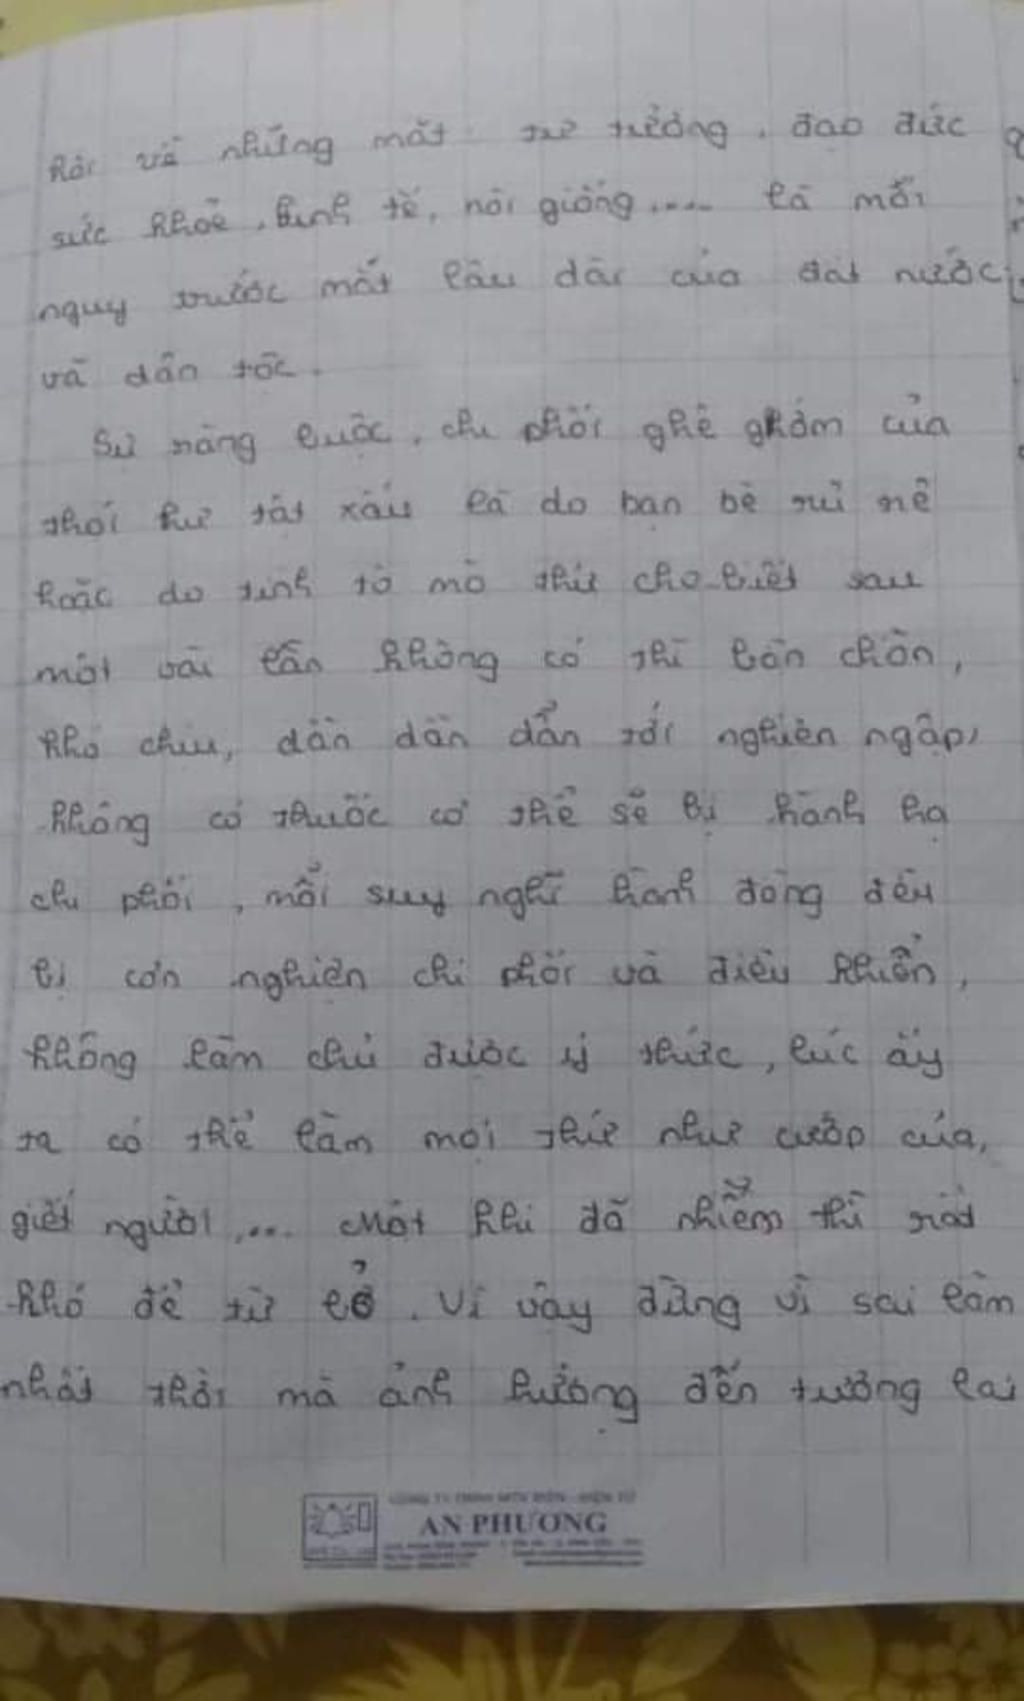 hội về những mặt tư tưởng, đạo đức
sức khỏe, kinh tế, nòi giống.... là mối
nguy trước mắt lâu dài của đất nước
và dân tộc.
Sự ràng buộc, chi phối ghê ghớm của
thói hư tật xấu là do bạn bè rủi rê
hoặc do tính tò mò thử cho biết sau
một vài lần không có thì bồn chồn,
khó chịu, dần dần dẫn tới nghiện ngập,
không có thuốc cơ thể sẽ bị hành hạ
chi phối, mỗi suy nghĩ hành động đều
bị cơn nghiện chi phối và điều khiển,
không làm chủ được ý thức, lúc ấy
ta có thể làm mọi thứ như cướp của,
giết người,... Một khi đã nhiễm thì rất
khó để từ bỏ. Vì vậy đừng vì sai lầm
nhất thời mà ảnh hưởng đến tương lai
AN PHƯƠNG